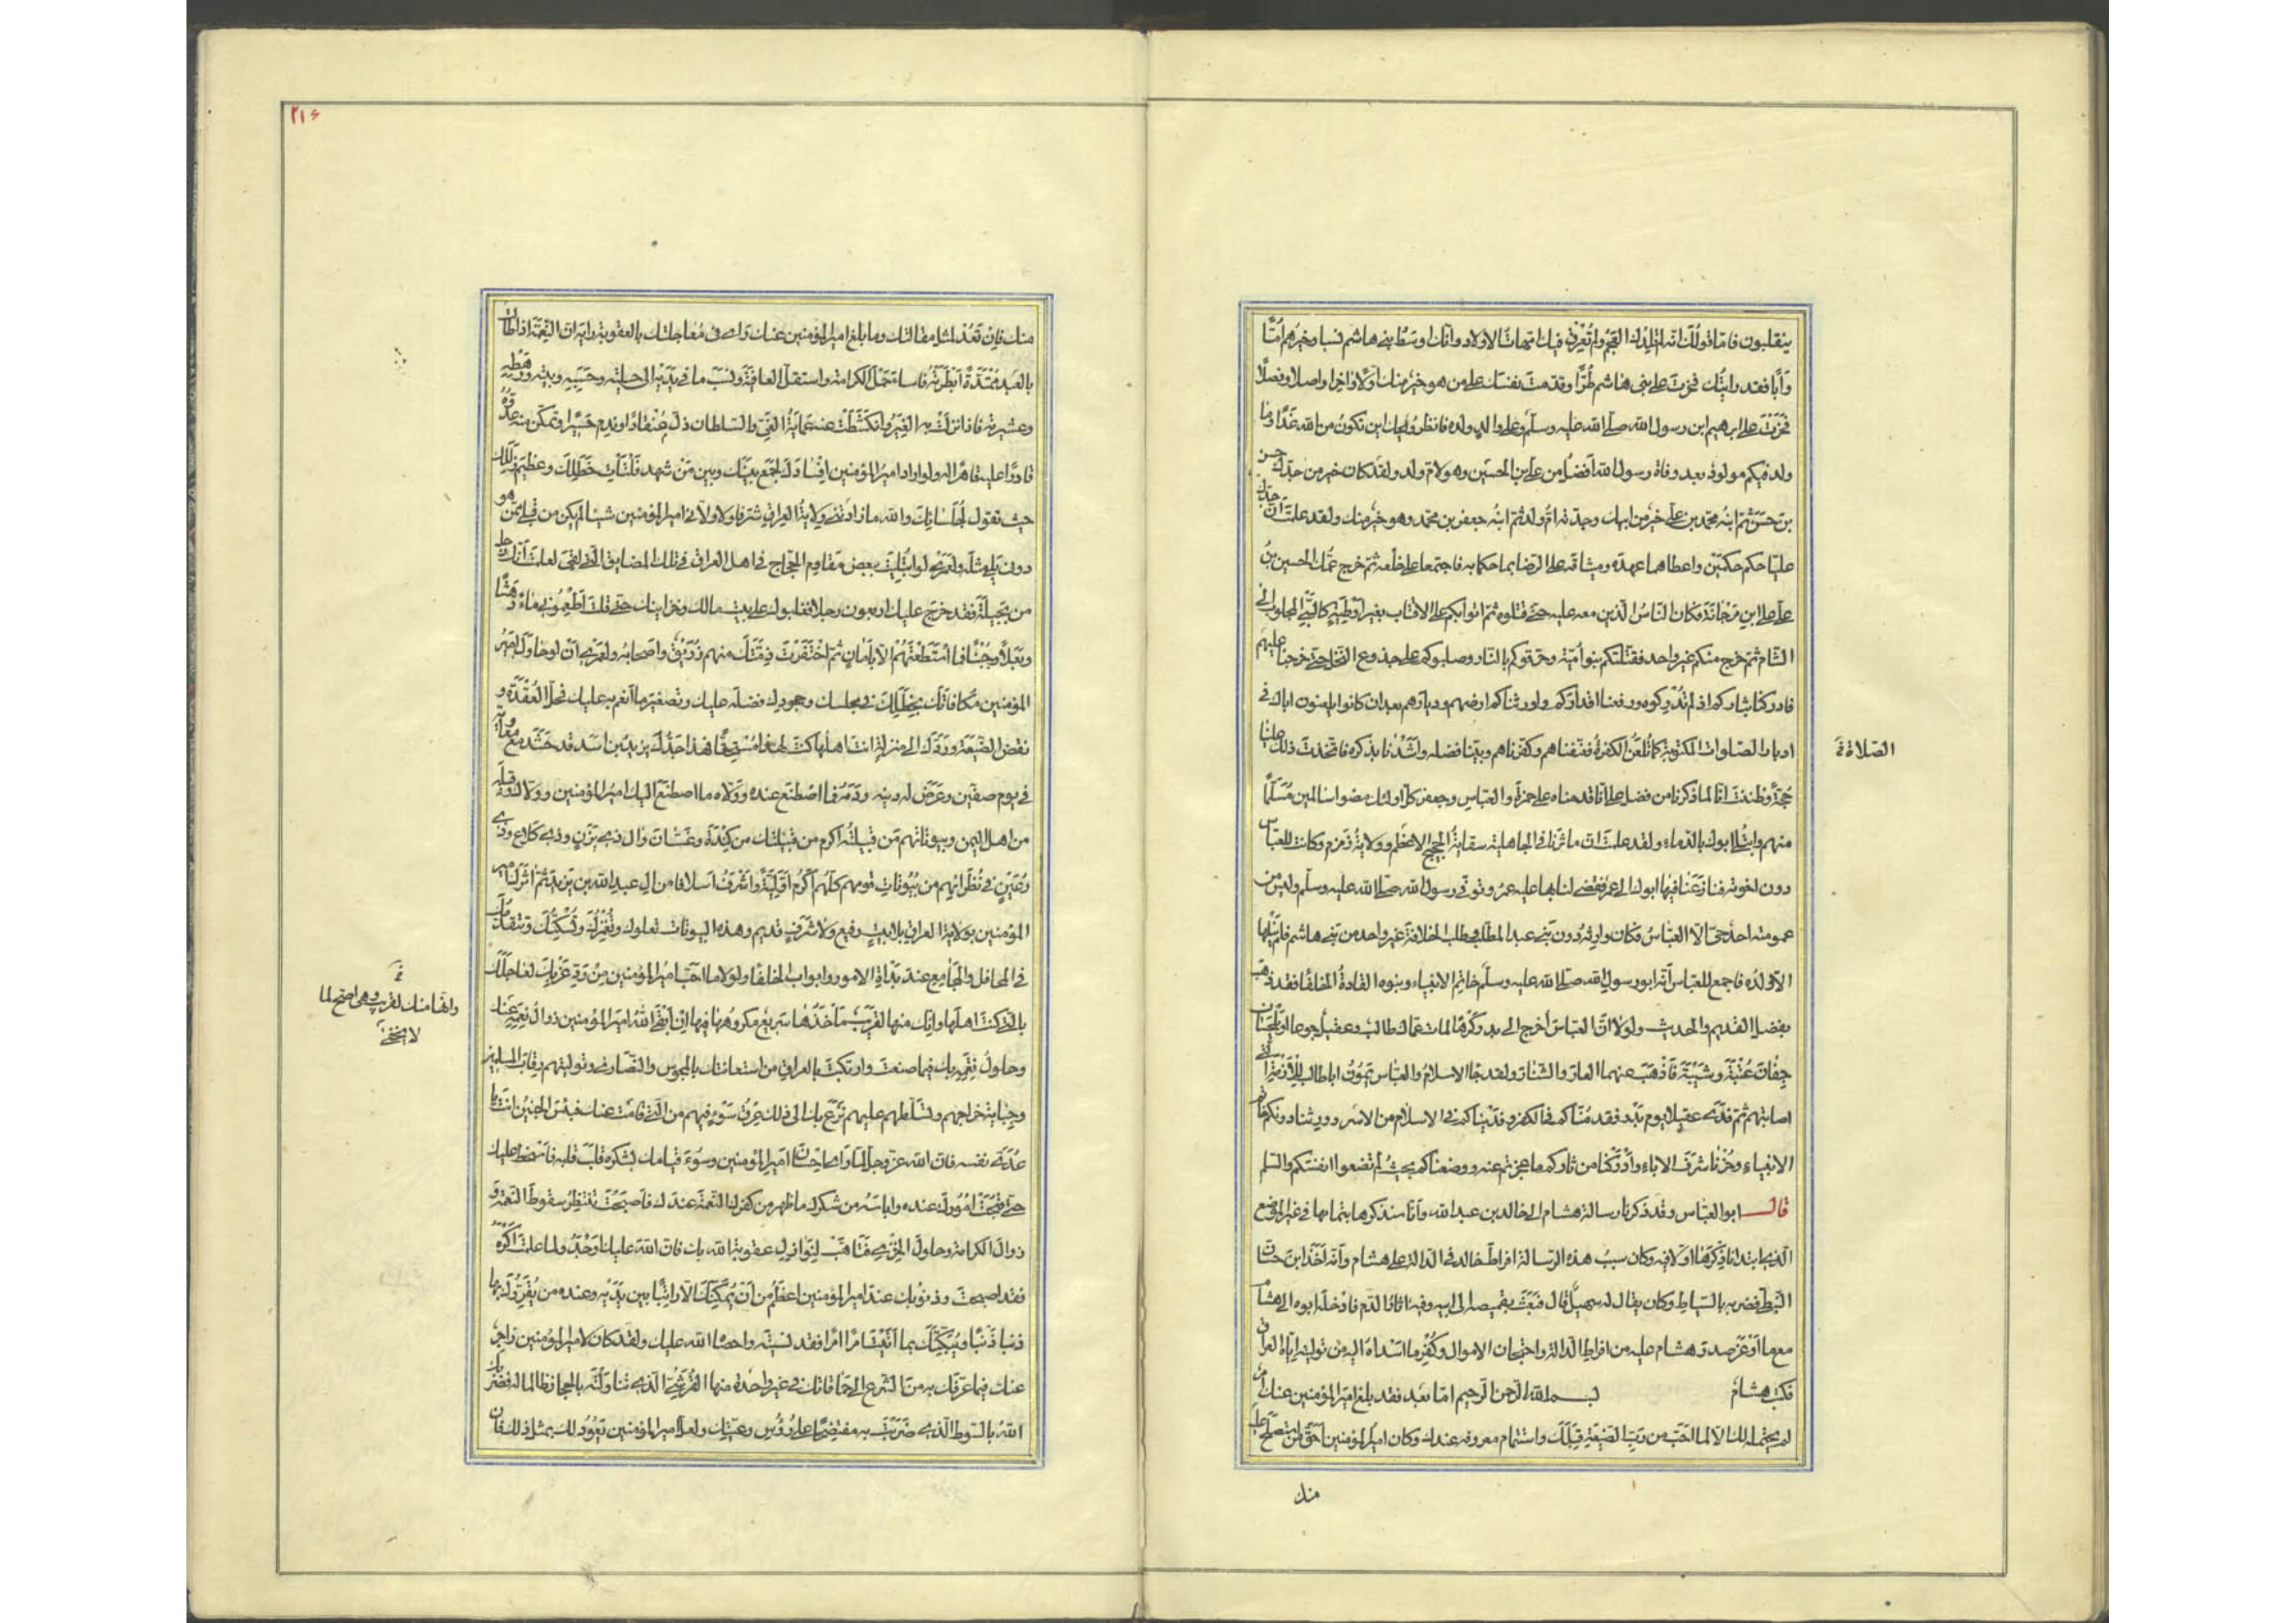 ينقلبون فامّا قولك انّه لم تلدك العجم ولم تُعرِق فيك امّهات الاولاد وانّك اوسط بنى هاشم نسبا وخيرهم امّاً
وَاَبًا فقد رايتُك فخرتَ على بنى هاشم طُرًّا وقدّمتَ نفسك على من هو خير منك اوّلا واخرا واصلا وفصلا
فخرتَ على ابرهيم ابن رسول الله صلّى الله عليه وسلّم وعلى والدٍ ولده فانظر ويحك اين تكون من الله غدًا وما
ولد فيكم مولود بعد وفاة رسول الله افضل من علىّ بن الحسين وهو لامّ ولد ولقد كان خير من جدّك حسن
بن حسن ثمّ ابنُه محمّد بن علىّ خير من ابيك وجدّته امّ ولد ثمّ ابنُه جعفر بن محمّد وهو خير منك ولقد علمتَ انّ جدّك
عليّا حكّم حكمين واعطاهما عهده وميثاقه على الرّضا بما حكما به فاجتمعا على خلعه ثمّ خرج عمّك الحسين بنُ
علىّ على ابنِ مَرْجانةَ فكان النّاسُ الّذين معه عليه حتّى قتلوه ثمّ اتوا بكم على الاقتاب بغير اوطيةٍ كالسّبى المجلوب الى
الشّام ثمّ خرج منكم غير واحد فقتلتكم بنو اُميّة وحرّقوكم بالنّار وصلبوكم على جذوع النّخل حتّى خرجنا عليهم
فادركنا بثاركم اذ لم تُدركوه ورفعنا اقداركم واورثناكم ارضهم وديارهم بعد ان كانوا يلعنون اباك فى
ادبار الصّلوات المكتوبة كما تُلعَن الكفرةُ فعنّفناهم وكفّرناهم وبيّنا فضله واَشَدْنا بذكره فاتّخذتَ ذلك علينا
حجّةً وظننتَ انّا لما ذكرنا من فضل علىّ انّا قدّمناه على حمزة والعبّاس وجعفر كلّ اولئك مضوا سالمين مُسَلَّماً
منهم وابتُلى ابوك بالدّماء ولقد علمتَ انّ ماثرنا فى الجاهلية سقايةُ الحجيج الاعظم وولايةُ زمزم وكانت للعبّاس
دون اخوته فنازَعَنا فيها ابوك الى عمر فقضى لنا بها عليه عمرُ وتوفّى رسول الله صلّى الله عليه وسلّم وليس من
عمومته احد حيّا الا العبّاسُ فكان وارثَه دون بَنى عبد المطّلب وطلب الخلافةَ غير واحد من بَنى هاشم فلم ينلها
الا ولدُه فاجتمع للعبّاس انّه ابو رسول الله صلّى الله عليه وسلّم خاتمِ الانبياء وبنوه القادةُ الخلفا فقد ذهب
بفضل القديم والحديث ولولا انّ العبّاسَ اُخرج الى بدر كُرهًا لمات عمّاك طالب وعقيل جوعا او يلحسان
جِفانَ عُتْبَةَ وشَيْبَةَ فاَذْهَبَ عنهما العارَ والشّنار ولقد جا الاسلامُ والعبّاس يموُن اباطالب للازمة الّتى
اصابتهم ثمّ فَدى عقيلا يوم بدر فقد مُنّاكم فى الكفر وفديناكم فى الاسلام من الاسر وورثنا دونكم خاتم
الانبياء وحُزْنا شرف الاباء وادركنا من ثاركم ما عجزتم عنه ووضعناكم بحيث لم تضعوا انفسكم والسّلم
قال ابو العبّاس وقد ذكرنا رسالة هشام الى خالد بن عبد الله وانّا سنذكرها بتمامها فى غير الموضع
الّذى ابتدانا ذِكْرَها اوّلا فيه وكان سبب هذه الرّسالة افراط خالد فى الدالّة على هشام وانّه اَخَذَ ابنَ حسّان
النّبطىّ فضربه بالسّياط وكان يقال له سهيل قال فبَعَثَ بقميصه الى ابيه وفيه اثار الدّم فادخله ابوه الى هشام
مع ما اَوْغَر صدر هشام عليه من افراط الدّالّة واحتجان الاموال وكُفْرِ ما اسداه اليه من توليته ايّاه العراق
فكتب هشام بسم الله الرّحمن الرّحيم امّا بعد فقد بلغ امير المؤمنين عنك امر
لم يحتمله لك الا لما احبّ من ربّ الصّنيعة قِبَلَك واستتمام معروفه عندك وكان امير المؤمنين احقّ من استصلح ما فسد عليه
منك
الصّلاة فى
٢١۶
منك فان تَعُدْ لمثل مقالتك وما بلغ امير المؤمنين عنك رأى فى مُعاجلتك بالعقوبة رايه انّ النّعمة اذا طالت
بالعبد مُمتدّةً اَبطرته فاساء حمل الكرامة واستقلّ العافيةَ ونسب ما فى يديه الى حيلته وحَسَبِه وبيته ورهطه
وعشيرته فاذا نزلتْ به الغِيَر وانكشطت عنه عَمايةُ الغىّ والسّلطان ذلّ منقادًا وندم حسيرا وتمكّن منه عدوّه
قادرًا عليه قاهرًا له ولو اراد امير المؤمنين افسادك لجمع بينك وبين من شهد فَلَتاتِ خَطَلِك وعظيمَ زللك
حيث تقول لجُلسائك والله ما زادتنى ولايةُ العراق شرفا ولا ولّانى امير المؤمنين شيئا لم يكن من قبلى ممّن هو
دونى يلى مثله ولعمرى لو ابتُليتَ ببعض مقاوم الحجّاج فى اهل العراق فى تلك المضايق الّتى لقى لعلمتَ انّك رجل
من بجيلةَ فقد خرج عليك اربعون رجلا فغلبوك على بيت مالك وخزاينك حتّى قلتَ اَطعِمونى ماءً دَهَشًا
وبَعَلاً وجُبْنًا فما استطعتَهم الا بامانٍ ثمّ اَخفرتَ ذمّتَك منهم رُزَيْنٌ واصحابُه ولعمرى اَنْ لو حاول امير
المؤمنين مكافاتك بخطلك فى مجلسك وجحودك فضلَه عليك وتصغيرَ ما انعم به عليك فحلّ العُقْدةَ و
نقض الصّنيعةَ وردّك الى منزلةٍ انت اهلها كنتَ لذلك مُستحقّا فهذا جَدّك يزيد بن اسد قد حَشَد مع معاوية
فى يوم صفّين وعرّض له دينه ودمه فما اصطنع عنده وولّاه ما اصطنع اليك امير المؤمنين وولّاك وقبله
من اهل اليمن وبيوتاتهم مَن قبيلتُه اكرم من قبيلتك من كِنْدَة وغسّان وال ذى يَزَن وذى كَلاع وذى
رُعَيْن فى نُظَرائهم من بُيوتات قومهم كلّهم اكرم اوّليّةً واَشْرَفُ اسلافا من ال عبد الله بن يزيد ثمّ اثَرك امير
المؤمنين بولاية العراق بلا بيتٍ رفيع ولا شرفٍ قديم وهذه البيوتات تعلوك وتغمُرُك وتُسكِتُك وتتقدّمك
فى المحافل والمجامع عند بَداةِ الامور وابواب الخلفا ولولا ما احبّ امير المؤمنين من ردّ غَرْبِك لعاجلك
بالّتى كنتَ اهلها وانّك منها لقريب مأخذُها سريع مكروهُها فيها ان اَبقى اللهُ امير المؤمنين زوال نِعَمه عنك
وحلولُ نِقَمِه بك فيما صنعتَ وارتكبتَ بالعراق من استعانتك بالمجوس والنّصارى وتوليتهم رقاب المسلمين
وجِبايةَ خراجهم وتسلّطهم عليهم نزع بك الى ذلك عِرْقُ سَوْءٍ فيهم من الّتى قامت عنك فبئس الجنينُ انت يا
عُدَىَّ نفسه فانّ الله عزّ وجلّ لمّا راى احسان امير المؤمنين وسُوءَ قيامك بشكره قلّب قلبه فاسخطه عليك
حتّى قَبُحَتْ اُمورك عنده واياسه من شكرك ما ظهر من كفرك النّعمة عندك فاصبحتَ تنتظر سقوطَ النّعمة و
زوال الكرامة وحلول الخزى فتاهّبْ لنوازلِ عقوبة الله بك فانّ اللهَ عليك اوجَدُ ولما علمتَ اكْرَهُ
فقد اصبحت وذنوبك عند امير المؤمنين اعظم من ان يُبكِّتك الا راتبًا بين يديه وعنده من يُقرِّرك بها
ذنبا ذنبًا ويُبكّتك بما اتيتَ امرًا امرًا فقد نسيتَه واحصاه الله عليك ولقد كان لامير المؤمنين زاجر
عنك فيما عرّفك به من التّسرّع الى حماقاتك فى غير واحدة منها القُرَشىّ الّذى تناولته بالحجاز ظالما له فضربك
اللهُ بالسّوط الّذى ضَرَبتَه به مفتضحًا على رُؤُس رعيّتك ولعلّ امير المؤمنين يعُودُ لك بمثل ذلك فان
وانّها منك لقريب وهى اصحّ لما
لا يخفى